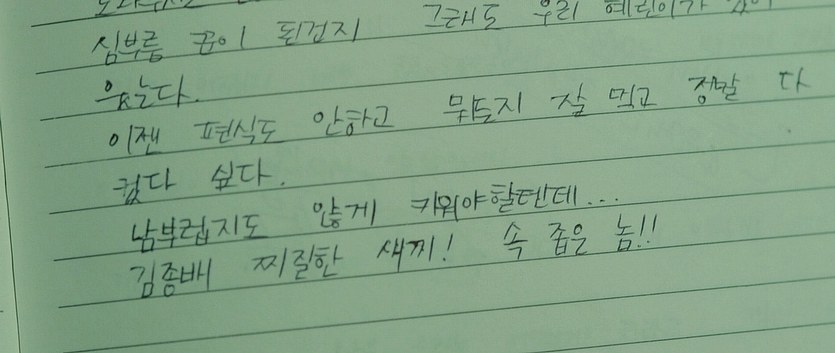 심부름 꾼이 된건지 그래도 우리 혜린이가 있어
웃는다.
이젠 편식도 안하고 뭐든지 잘 먹고 정말 다
컸다 싶다.
남부럽지도 않게 키워야할텐데...
김종배 찌질한 새끼! 속 좁은 놈!!